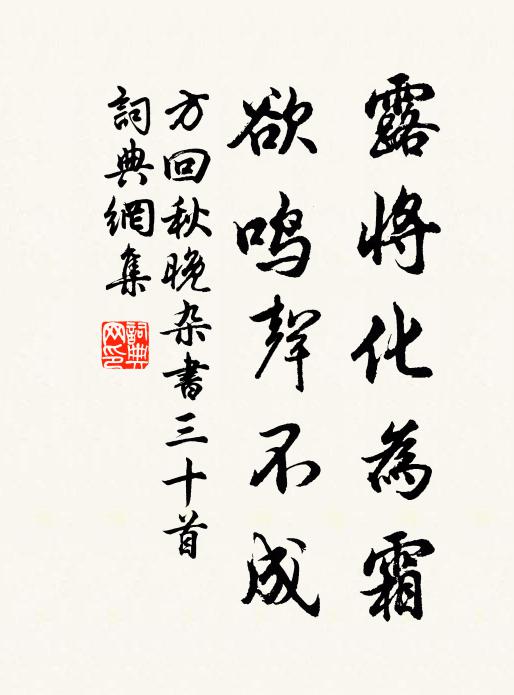 露将化為霜
欲鸣聲不成
方回秋晚杂書三十首
詞典網集
詞典网印